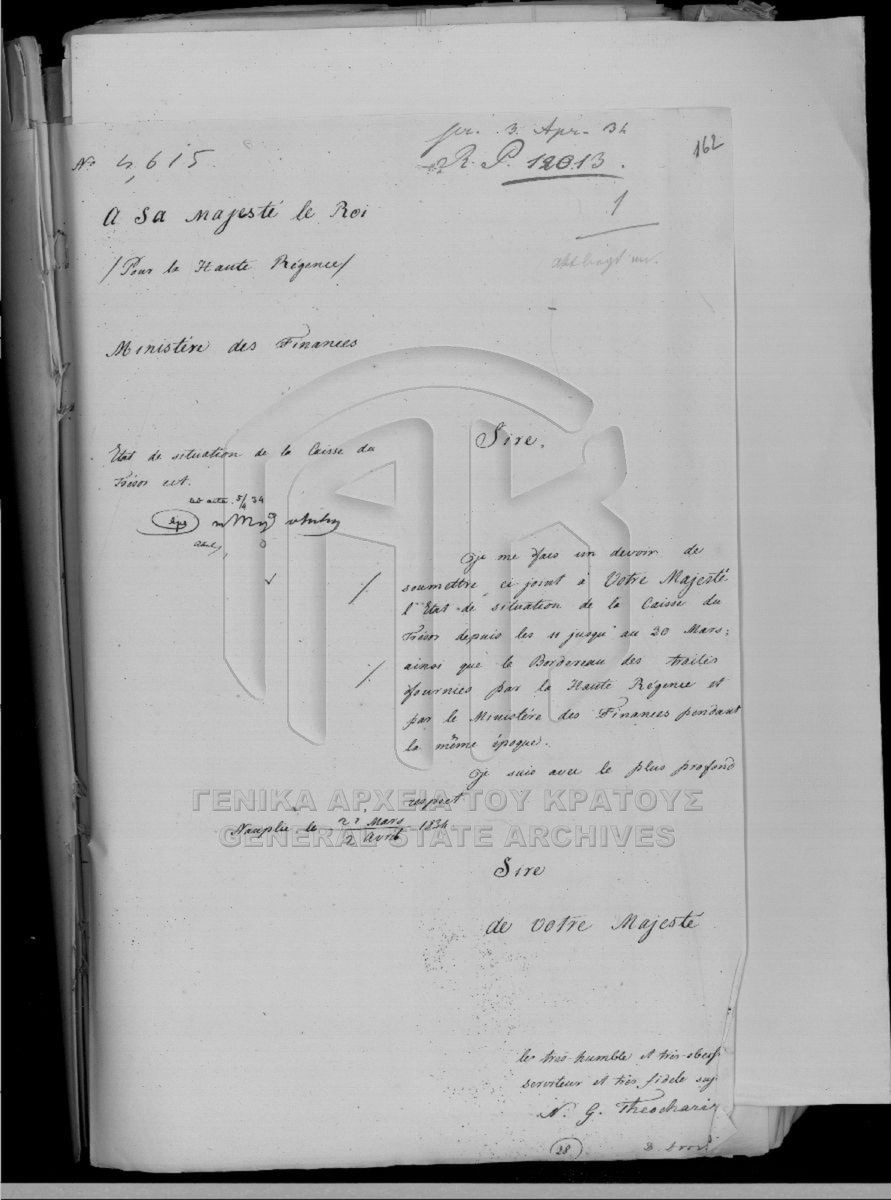 pr. 3. Apr. 34
162
No 4,615
R. P. 12013.
1
A Sa Majesté le Roi
/Pour la Haute Régence/
Ministère des Finances
Etat de situation de la Caisse du
Trésor ect.
ad acta 5/4 34
Sire,
Je me fais un devoir de
soumettre, ci joint à Votre Majesté
l'Etat de situation de la Caisse du
Trésor depuis les 11 jusqu'au 20 Mars;
ainsi que le Bordereau des traites
fournies par la Haute Régence et
par le Ministère des Finances pendant
la même époque.
Je suis avec le plus profond
respect
Nauplie le 21 Mars / 2 Avril 1834
ΓΕΝΙΚΑ ΑΡΧΕΙΑ ΤΟΥ ΚΡΑΤΟΥΣ
GENERAL STATE ARCHIVES
Sire
de Votre Majesté
le très-humble et très-obeiss
serviteur et très fidèle suj
N. G. Theochari
28